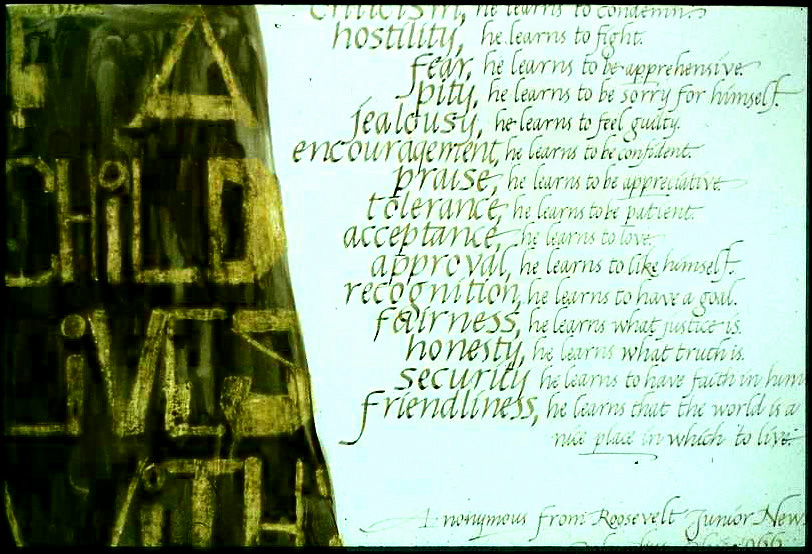 IF A
CHiLD
LiVES
WiTH
criticism, he learns to condemn.
hostility, he learns to fight.
fear, he learns to be apprehensive.
pity, he learns to be sorry for himself.
jealousy, he learns to feel guilty.
encouragement, he learns to be confident.
praise, he learns to be appreciative.
tolerance, he learns to be patient.
acceptance, he learns to love.
approval, he learns to like himself.
recognition, he learns to have a goal.
fairness, he learns what justice is.
honesty, he learns what truth is.
security he learns to have faith in him
friendliness, he learns that the world is a
nice place in which to live.
Anonymous from Roosevelt Junior News